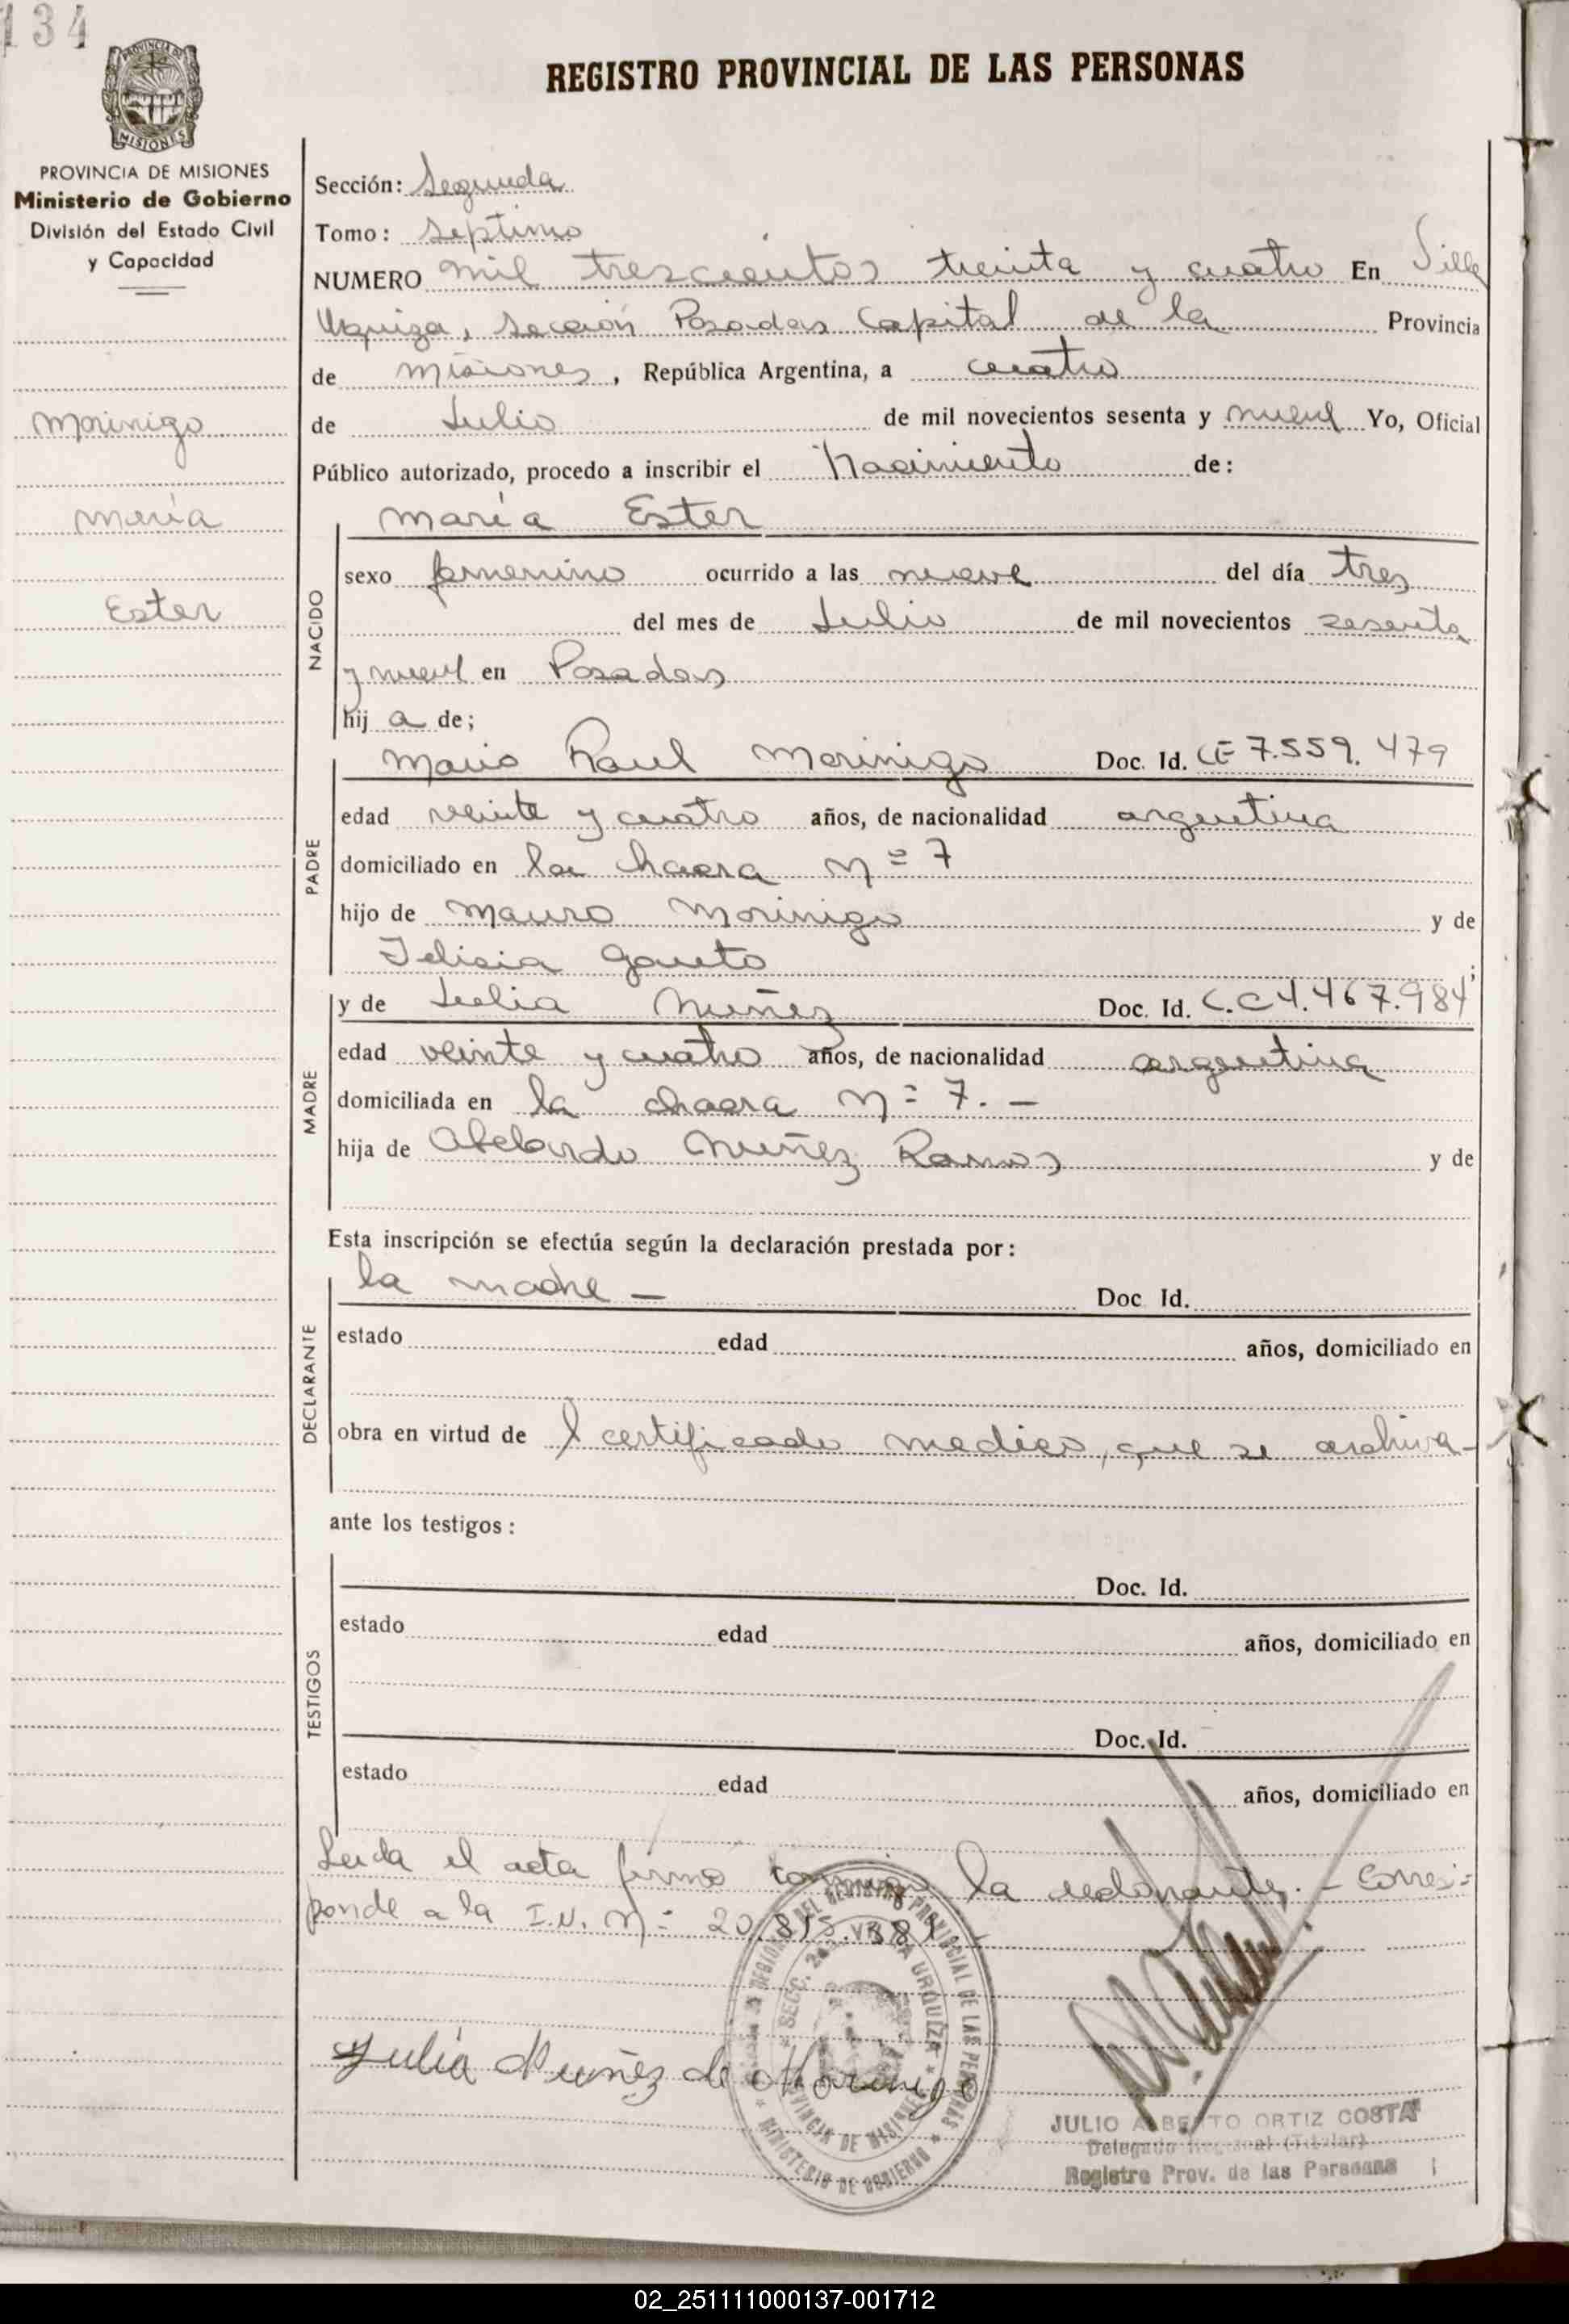 134
PROVINCIA DE MISIONES
PROVINCIA DE MISIONES
Ministerio de Gobierno
División del Estado Civil
y Capacidad
Morinigo
María
Ester
REGISTRO PROVINCIAL DE LAS PERSONAS
Sección: Segunda
Tomo: Septimo
NUMERO mil trescientos treinta y cuatro En Villa
Urquiza, Sección Posadas Capital de la Provincia
de Misiones, República Argentina, a cuatro
de Julio de mil novecientos sesenta y nueve Yo, Oficial
Público autorizado, procedo a inscribir el Nacimiento de:
NACIDO
María Ester
sexo femenino ocurrido a las nueve del día tres
del mes de Julio de mil novecientos sesenta
y nueve en Posadas
hij a de;
PADRE
Mario Raul Morinigo Doc. Id. CE 7.559.479
edad veinte y cuatro años, de nacionalidad argentina
domiciliado en la chacra Nº 7
hijo de Mauro Morinigo y de
Felicia Gauto;
MADRE
y de Julia Nuñez Doc. Id. C.C 4.467.984
edad veinte y cuatro años, de nacionalidad argentina
domiciliada en la chacra Nº 7. —
hija de Abelardo Nuñez Ramos y de
Esta inscripción se efectúa según la declaración prestada por:
DECLARANTE
la madre — Doc Id.
estado edad años, domiciliado en
obra en virtud de l certificado medico, que se archiva-
ante los testigos:
TESTIGOS
Doc. Id.
estado edad años, domiciliado en
Doc. Id.
estado edad años, domiciliado en
Leida el acta firma conmigo la declarante. — Corres=
ponde a la I.N. Nº 20.815.
Julia Nuñez de Morinigo
REGISTRO PROVINCIAL DE LAS PERSONAS
SECC. 2a. VILLA URQUIZA
PROVINCIA DE MISIONES
MINISTERIO DE GOBIERNO
JULIO ALBERTO ORTIZ COSTA
Delegado Regional (Titular)
Registro Prov. de las Personas
02_251111000137-001712